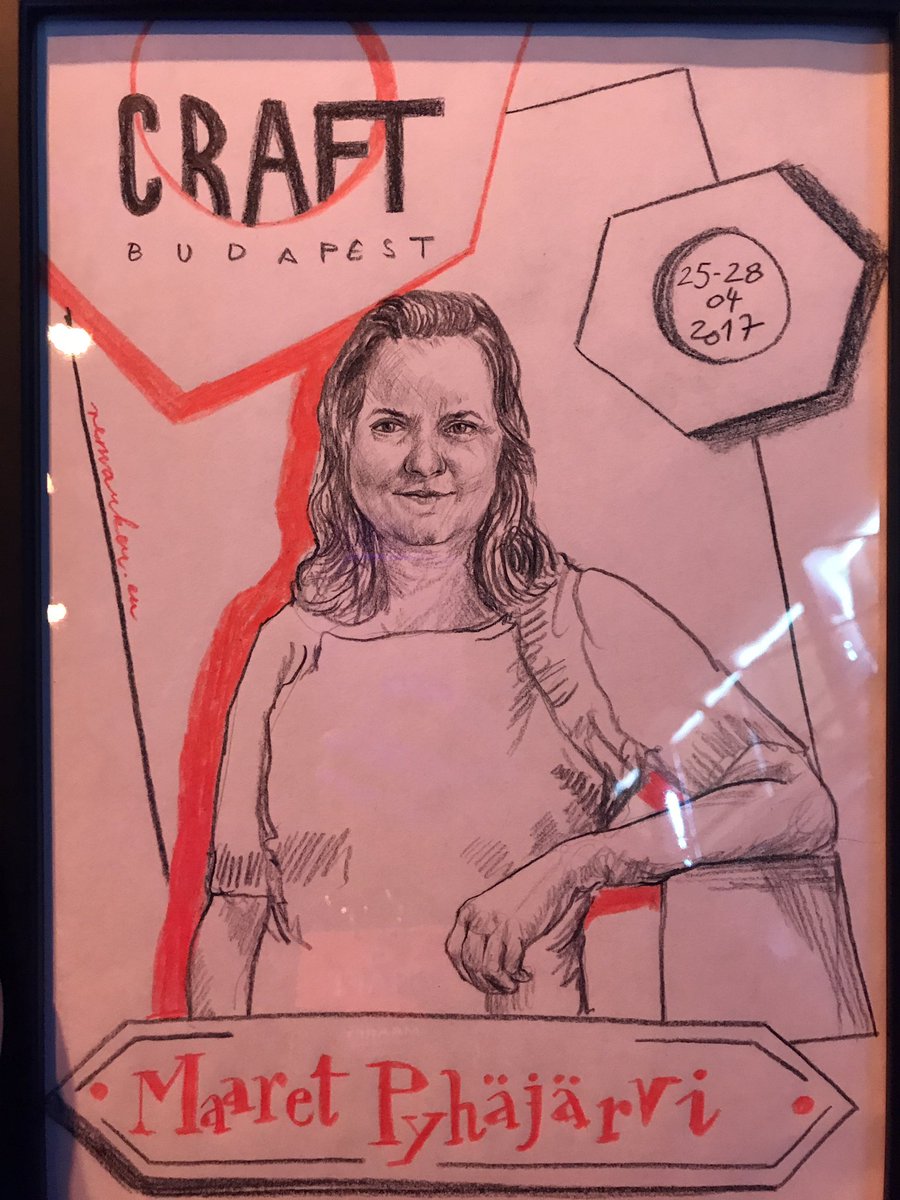 CRAFT
BUDAPEST
25-28
04
2017
remarker.eu
Maaret Pyhäjärvi